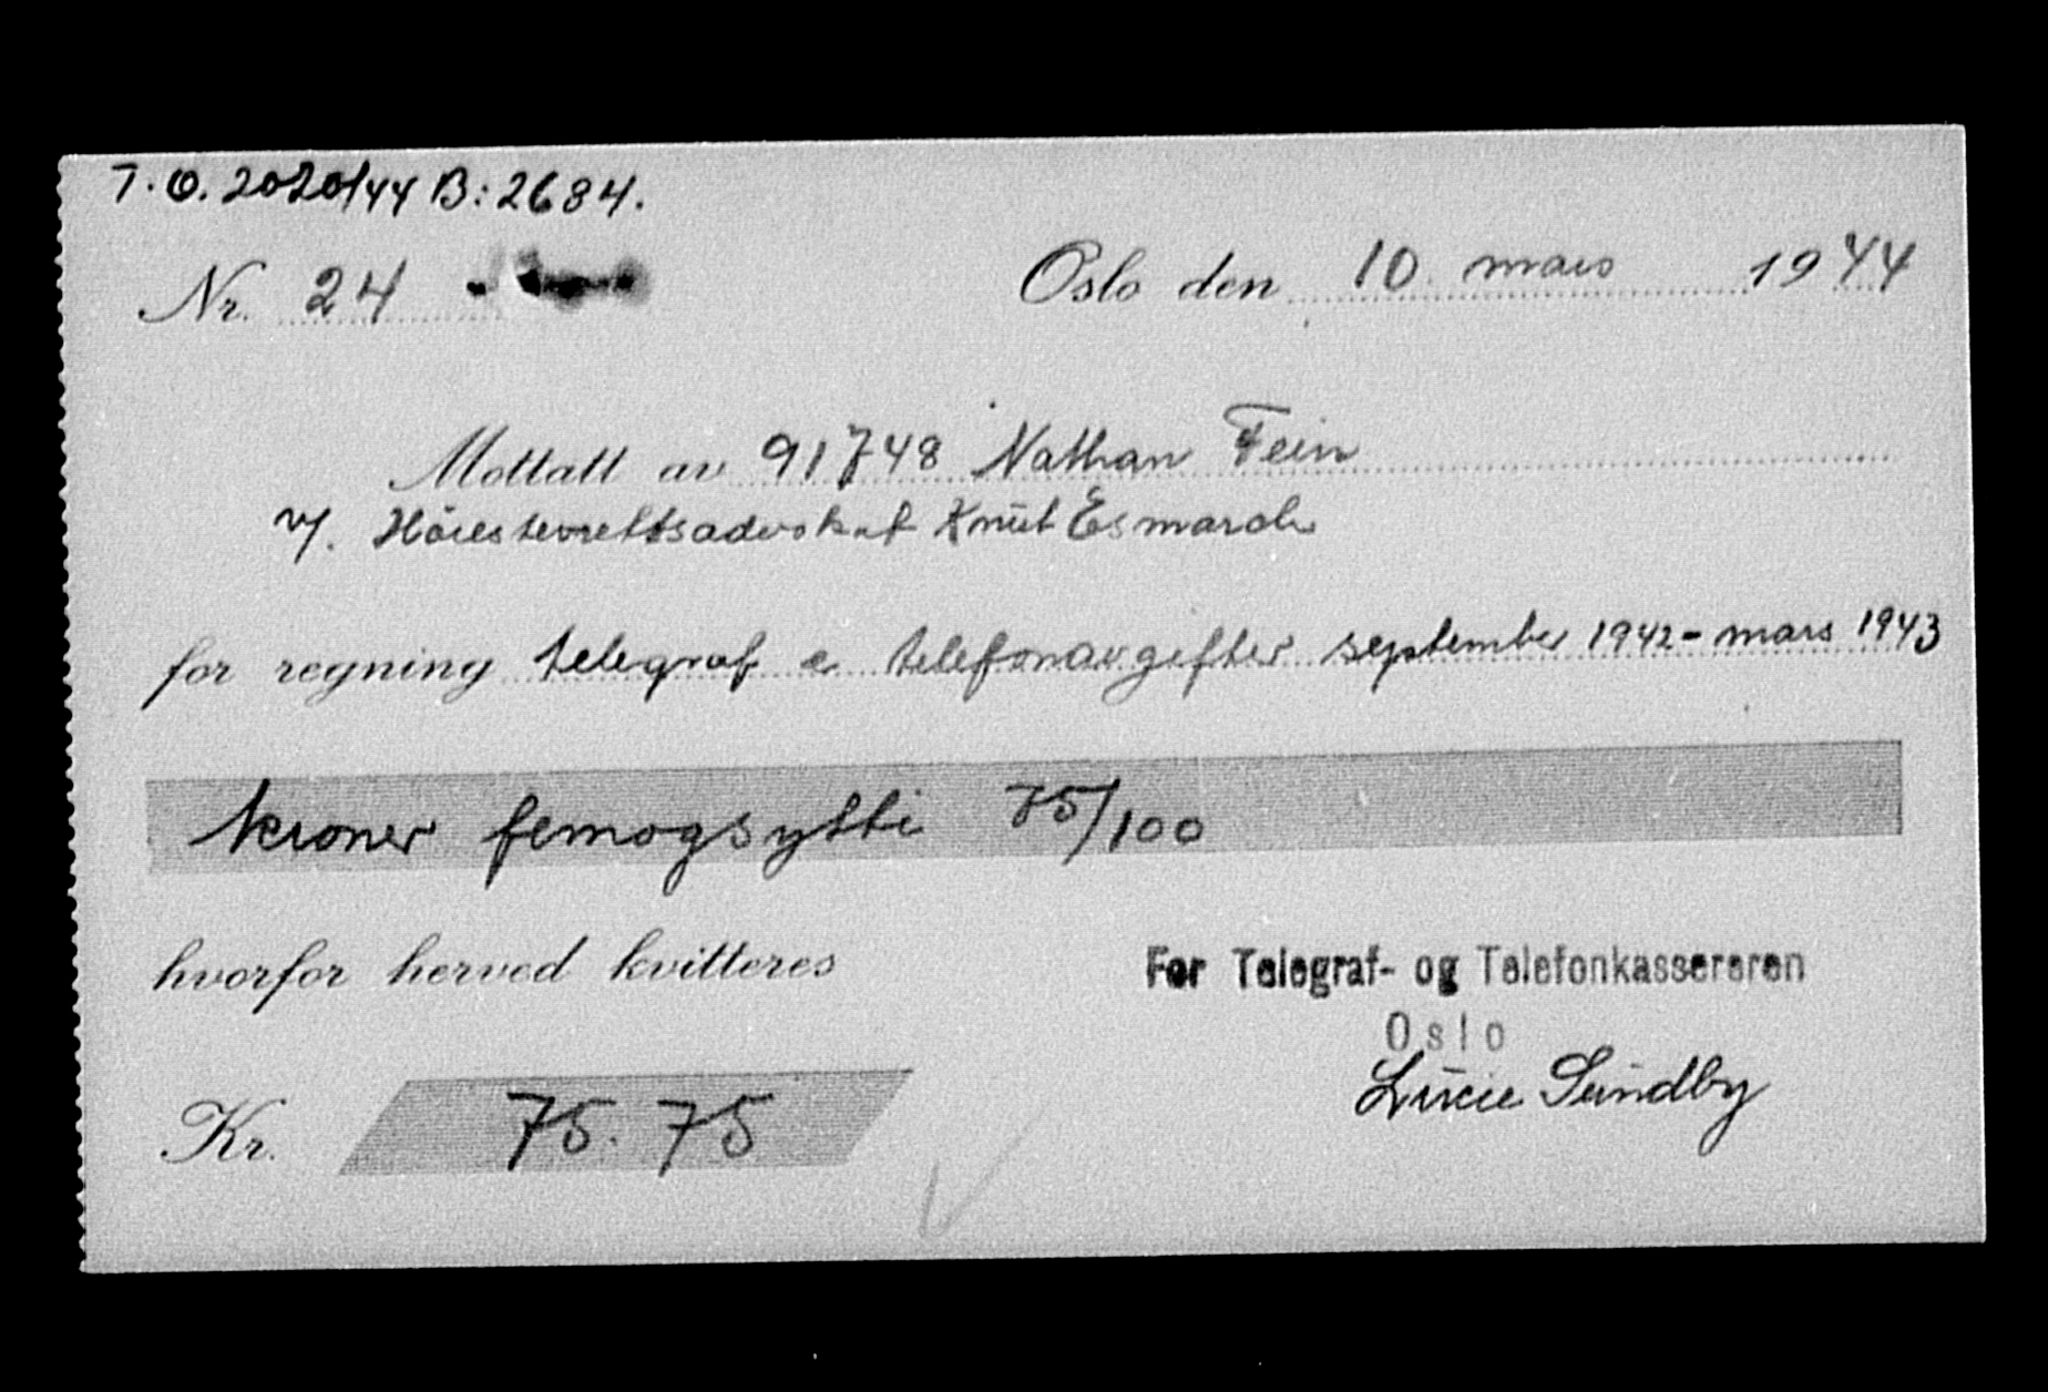 T.O. 2020/44 B: 2684.
Nr. 24
Oslo den 10 mars 1944
Mottatt av 91748 Nathan Fein
v/. Höiesterettsadvokat Knut Esmarch
for regning telegraf & telefonavgifter september 1942 - mars 1943
kroner femogsytti 75/100
hvorfor herved kvitteres
For Telegraf- og Telefonkassereren
Oslo
Lucie Sundby
Kr. 75.75